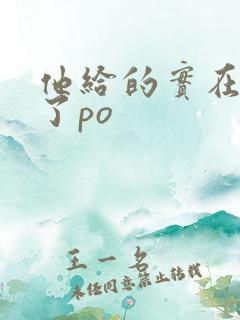 他給的實在
了po
王一名
未经同意禁止转载